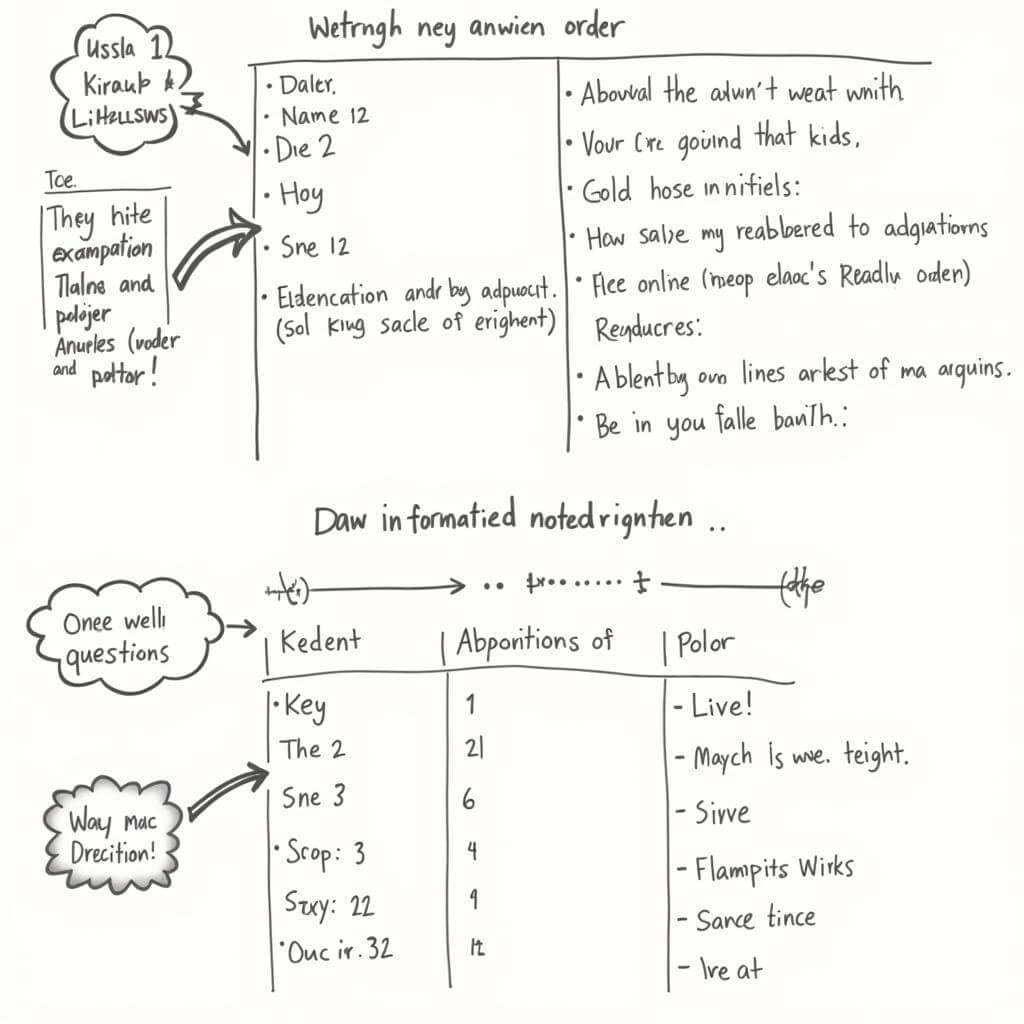 Wetrngh ney anwien order
Ussla 1
Kiraub &
LiHzLLSWS
Toe.
They hite
exampation
Tlalns and
polojer
Anurles (voder
and pottor!
• Daler.
• Name 12
• Die 2
• Hoy
• Sne 12
• Eldencation andr by adpuoct.
(Sol King sacle of erighent)
• Abowal the adwn't weat wnith
• Vour Cre gound that kids,
• Gold hose innifiels:
• How salse my reabbered to adgiations
• Flee online (ineop elaoc's Readlu orden)
Reyducres:
• Ablentby ovn lines arlest of ma arquins.
• Be in you falle banTh.:
Daw informatied notedrignthen ..
Onee welli
questions
Kedent
Abporitions of
Polor
Way Mac
Drecition!
• Key 1 - Live!
The 2 21 - Maych is wve. teight.
Sne 3 6 - Sirve
• Scop: 3 4 - Flampits Wirks
Stxy: 22 9 - Sance tince
• Ouc ir. 32 - Ire at